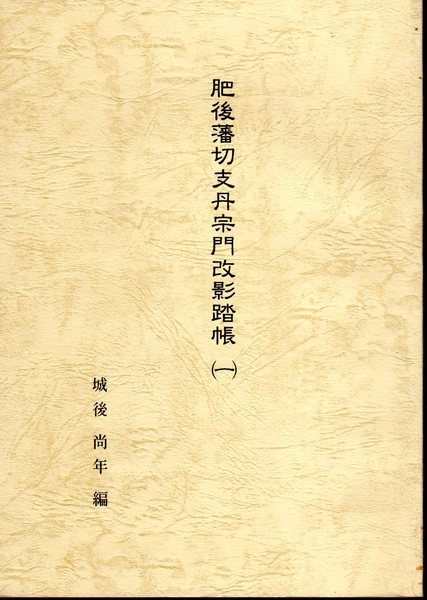 肥後藩切支丹宗門改影踏帳 (一)
城後 尚年 編